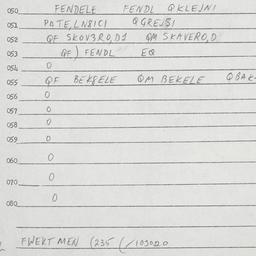 050 FENDELE FENDL QKLEJNI
051 PATE,LNSICI QGREJSI
052 QF SKOV3RO,DI QM SKAVERO,D
053 QF) FENDL EQ
054 O
055 QF BEKSELE QM BEKELE QBAK
056 O
057 O
058 O
059 O
060 O
070 O
080 O
FWEKT MEN (235 (/103020